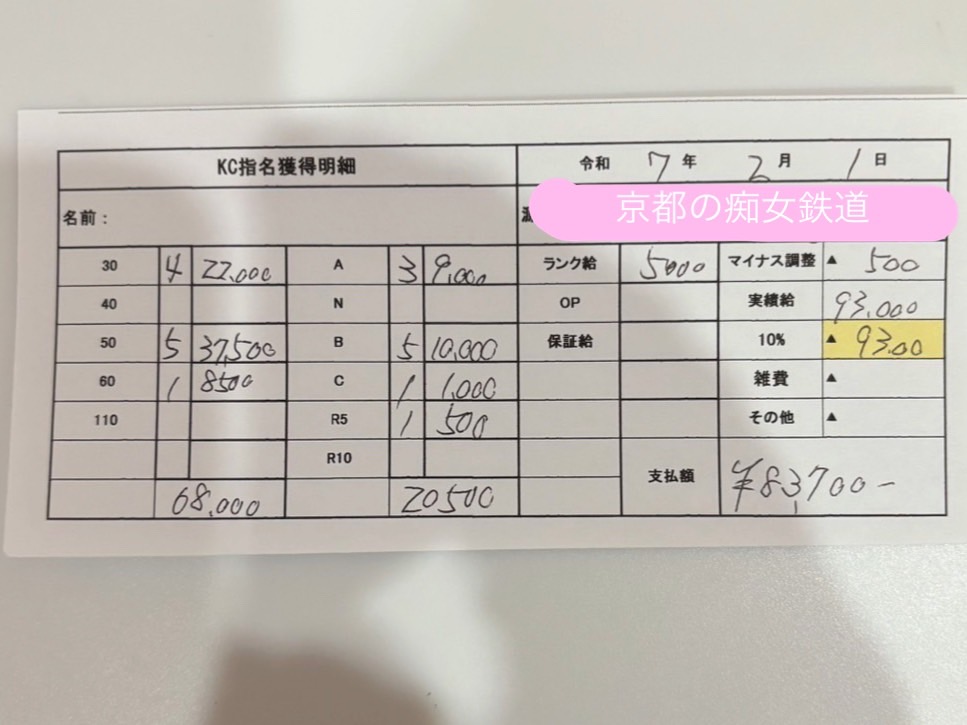 KC指名獲得明細 令和 7年 2月 1日
名前：
京都の痴女鉄道
30 4 22,000 A 3 9,000 ランク給 5000 マイナス調整 ▲ 500
40 N OP 実績給 93,000
50 5 37,500 B 5 10,000 保証給 10% ▲ 93.00
60 1 8500 C 1 1,000 雑費 ▲
110 R5 1 500 その他 ▲
R10
68,000 20500 支払額 ¥83,700-